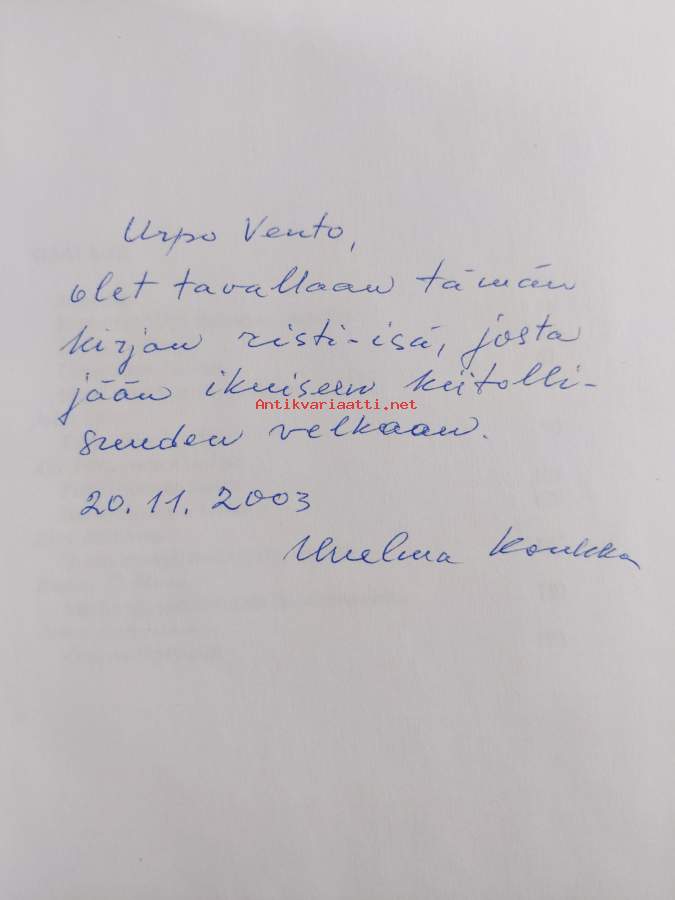 Urpo Vento,
olet tavallaan tämän
kirjan risti-isä, josta
jään ikuiseen kiitolli-
Antikvariaatti.net
suuden velkaan.
20.11.2003
Unelma Konkka